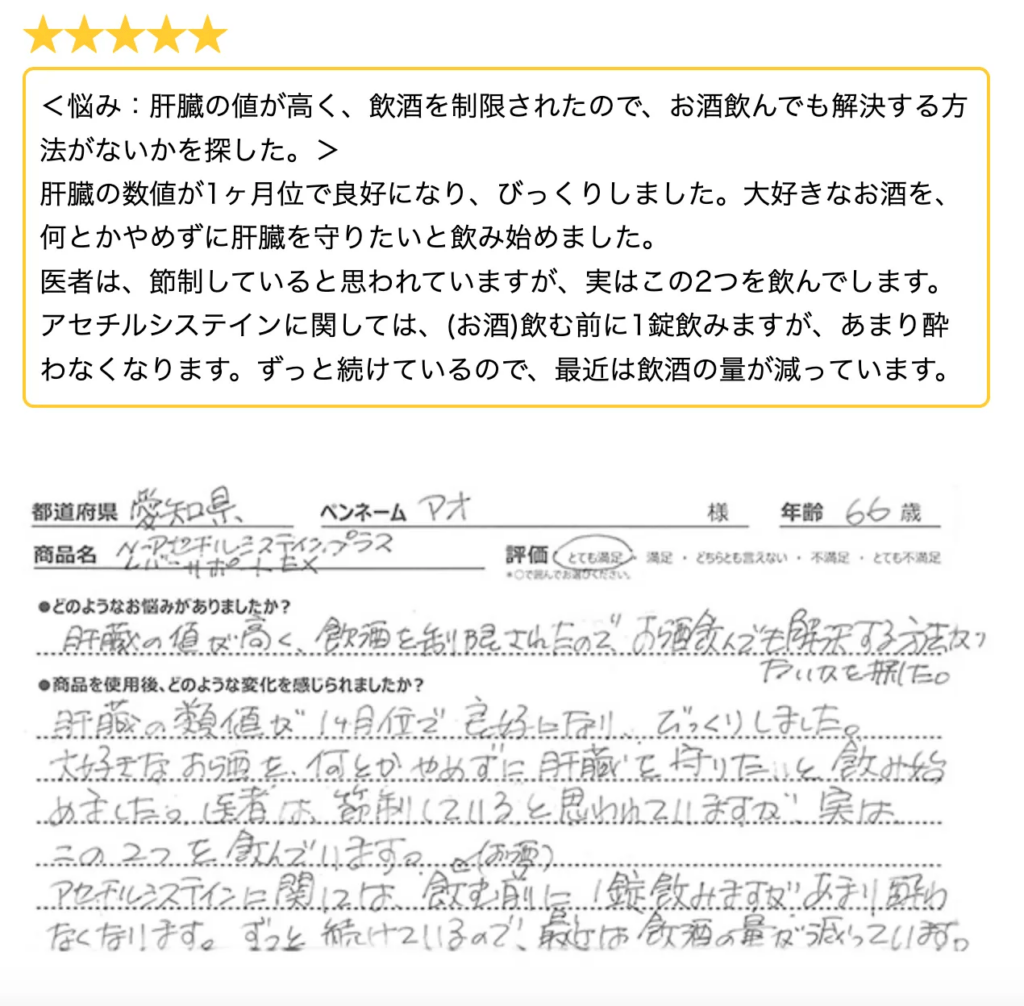 ★★★★★
<悩み：肝臓の値が高く、飲酒を制限されたので、お酒飲んでも解決する方
法がないかを探した。>
肝臓の数値が1ヶ月位で良好になり、びっくりしました。大好きなお酒を、
何とかやめずに肝臓を守りたいと飲み始めました。
医者は、節制していると思われていますが、実はこの2つを飲んでします。
アセチルシステインに関しては、(お酒)飲む前に1錠飲みますが、あまり酔
わなくなります。ずっと続けているので、最近は飲酒の量が減っています。
都道府県 愛知県 ペンネーム アオ 様 年齢 66 歳
商品名 N-アセチルシステインプラス
レバーサポートEX
評価 とても満足 ・ 満足 ・ どちらとも言えない ・ 不満足 ・ とても不満足
*○で囲んでお選びください。
●どのようなお悩みがありましたか?
肝臓の値が高く、飲酒を制限されたので、お酒飲んでも解決する方法が
ないかを探した。
●商品を使用後、どのような変化を感じられましたか?
肝臓の類値が1ヶ月位で良好になり、びっくりしました。
大好きなお酒を、何とかやめずに肝臓を守りたいと飲み始
めました。医者は、節制していると思われていますが、実は
この2つを飲んでいます。
(お酒)
アセチルシステインに関しては、飲む前に1錠飲みますがあまり酔わ
なくなります。ずっと続けているので、最近は飲酒の量が減っています。